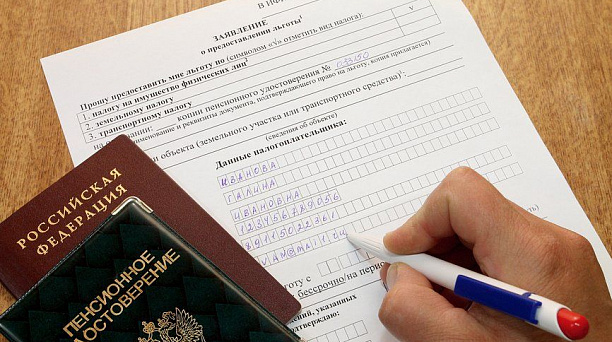 В ИФН
ЗАЯВЛЕНИЕ
о предоставлении льготы¹
Прошу предоставить мне льготу по (символом «√» отметить вид налога):
1. налогу на имущество физических лиц²
2. земельному налогу
3. транспортному налогу
v
на основании: копии пенсионного удостоверения №
наименование и реквизиты документа, подтверждающего право на льготу, копия прилагается)
и объекта (земельного участка или транспортного средства):
(сведения об объекте)
Данные налогоплательщика:
ИВАНОВА
ГАЛИНА
ИВАНОВНА
123456789056
89115022361
льготу с
бессрочно/на период
указанных
подтверждаю:
РОССИЙСКАЯ
ФЕДЕРАЦИЯ
ПЕНСИОННОЕ
УДОСТОВЕРЕНИЕ